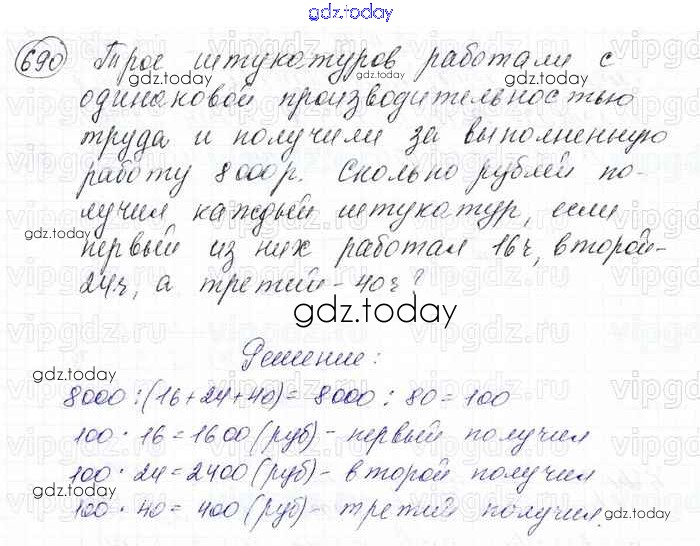 gdz.today
690 Трое штукатуров работали с
одинаковой производительностью
труда и получили за выполненную
работу 8000р. Сколько рублей по-
лучил каждый штукатур, если
первый из них работал 16ч, второй-
24ч, а третий - 40ч?
gdz.today
Решение:
8000:(16+24+40)= 8000 : 80 = 100
100 · 16 = 1600 (руб) - первый получил
100 · 24 = 2400 (руб) - второй получил
100 · 40 = 400 (руб) - третий получил.